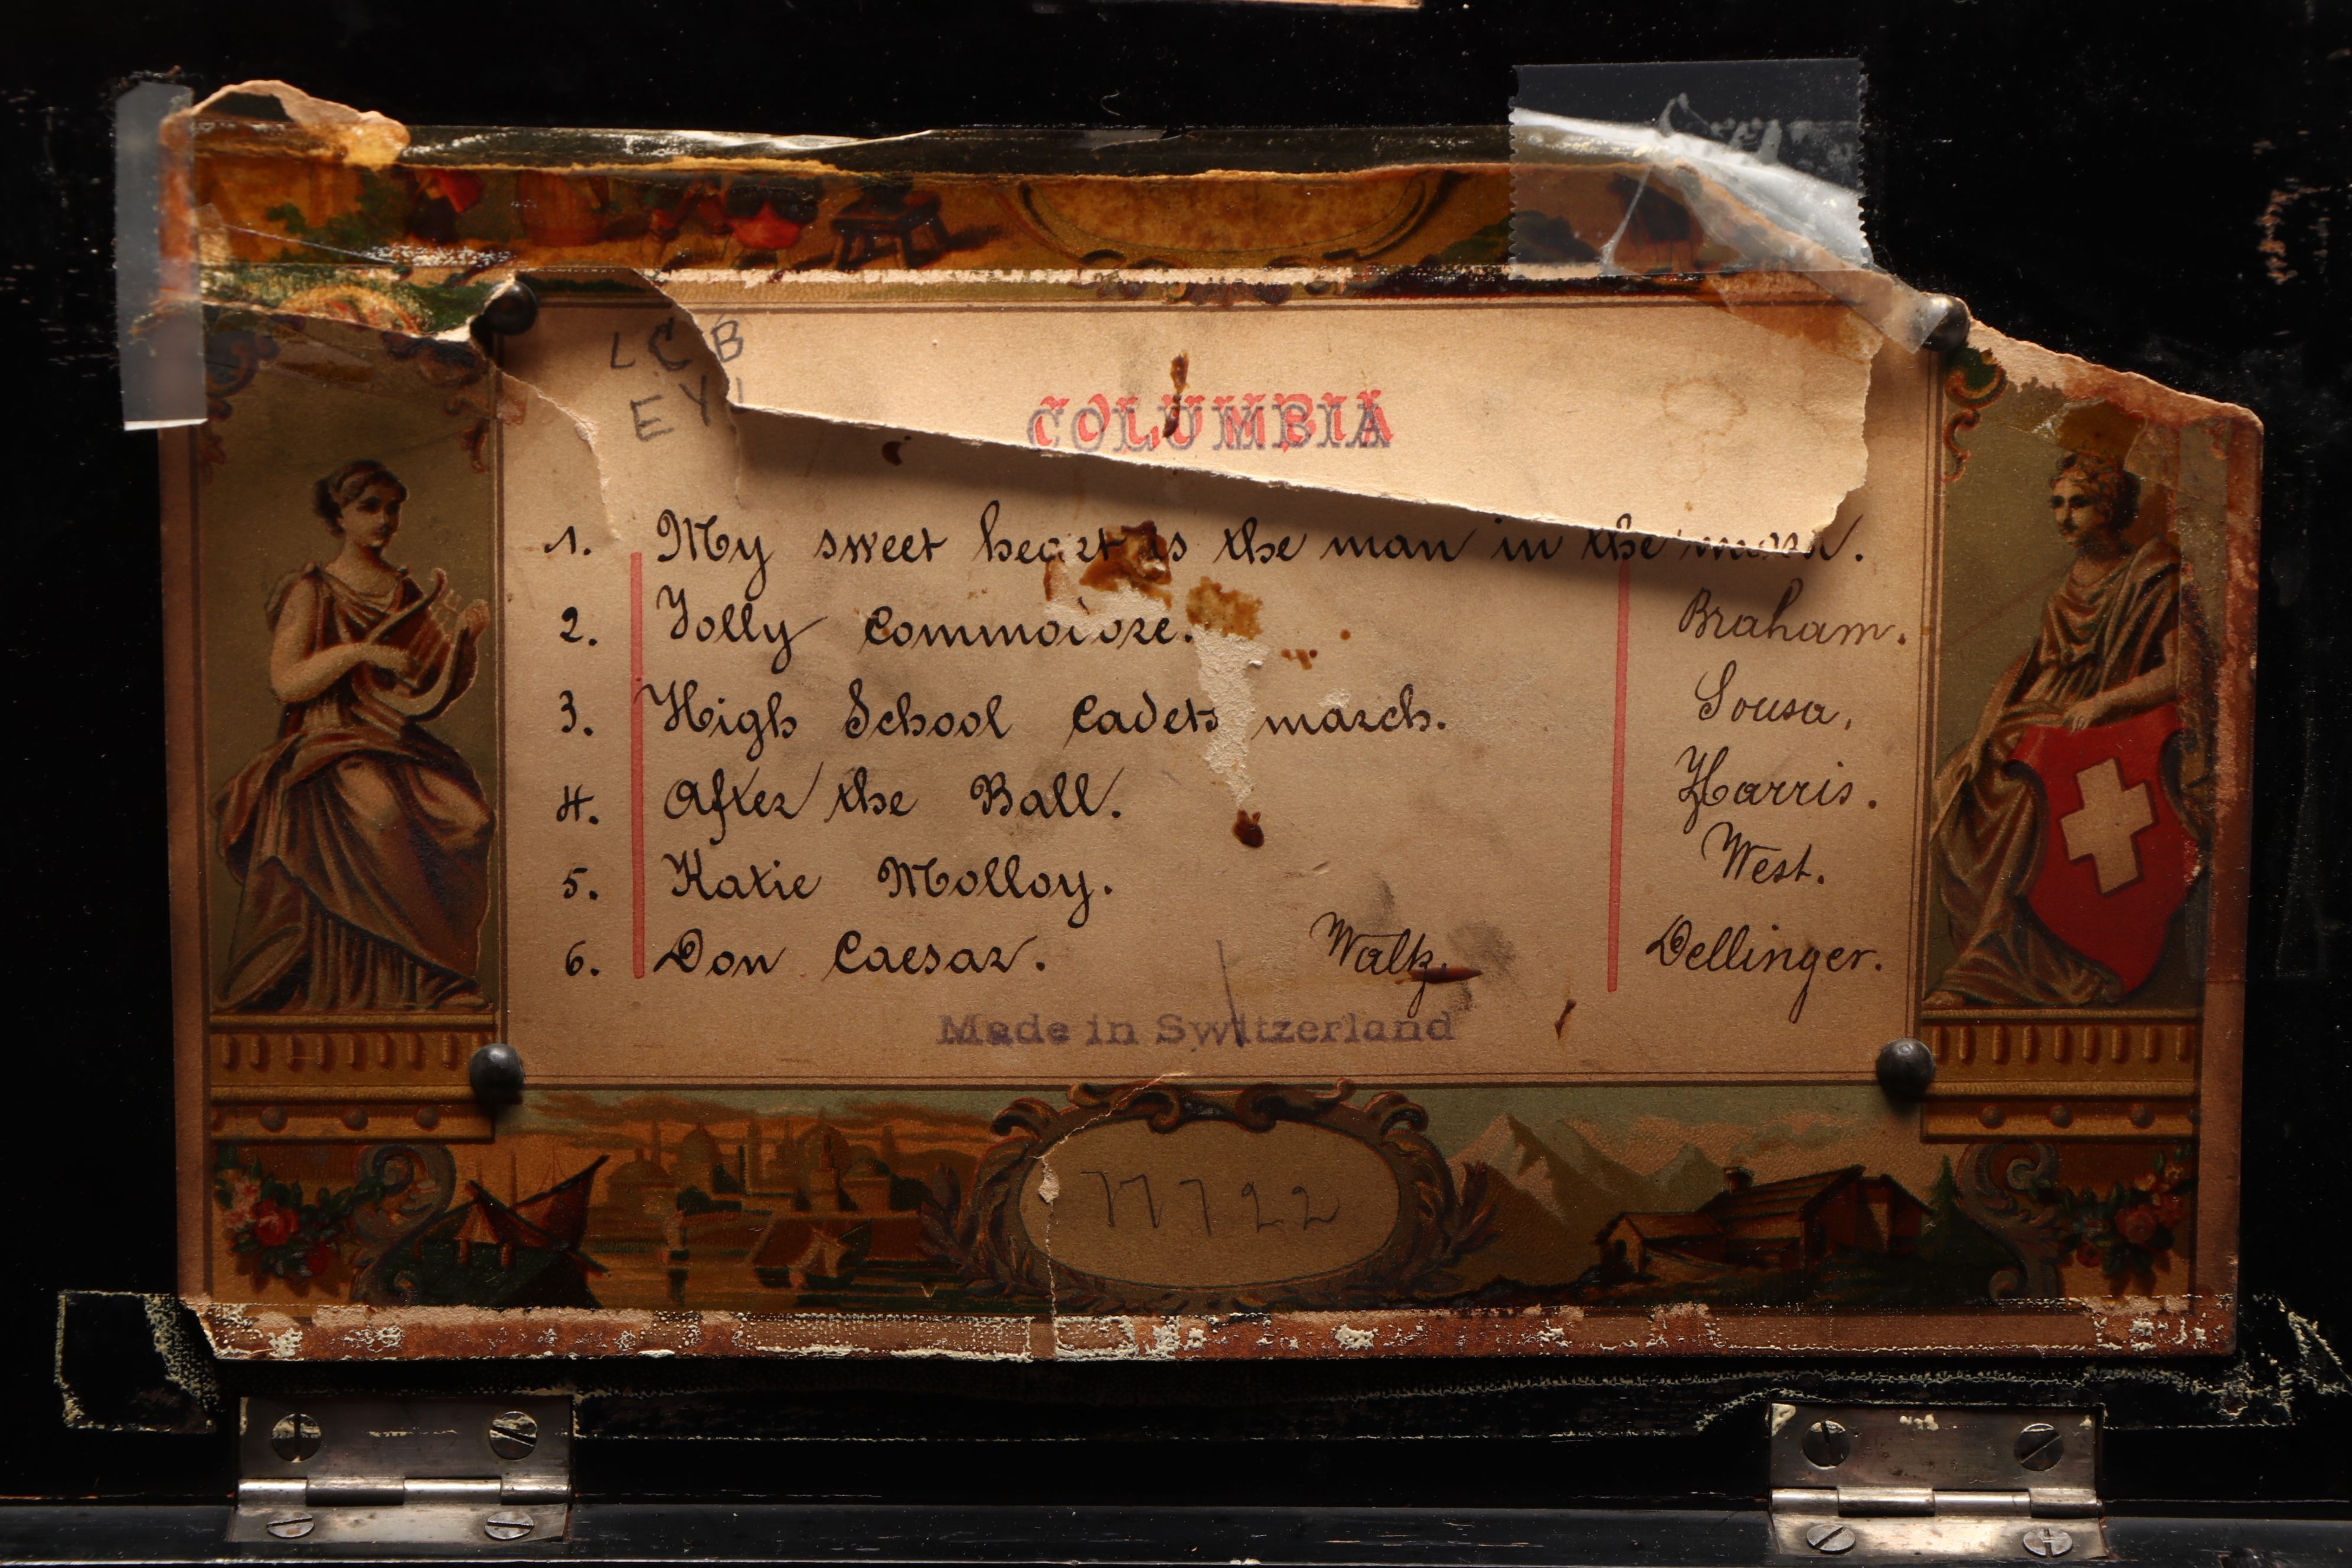 L C B
E Y
COLUMBIA
1. My sweet heart is the man in the moon.
2. Jolly Commodore. Braham.
3. High School Cadets march. Sousa.
4. After the Ball. Harris.
5. Katie Molloy. West.
6. Don Caesar. Waltz. Dellinger.
Made in Switzerland